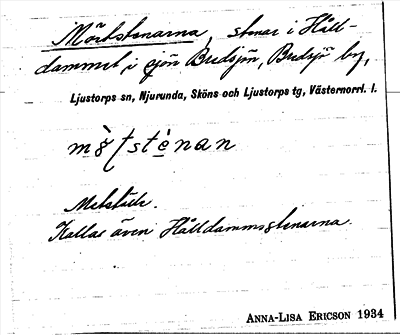 Mörtstenarna, stenar i Håll-
dammet, i sjön Bredsjön, Bredsjö by,
Ljustorps sn, Njurunda, Sköns och Ljustorps tg, Västernorrl. l.
Metställe.
Kallas även Hålldammsstenarna.
ANNA-LISA ERICSON 1934